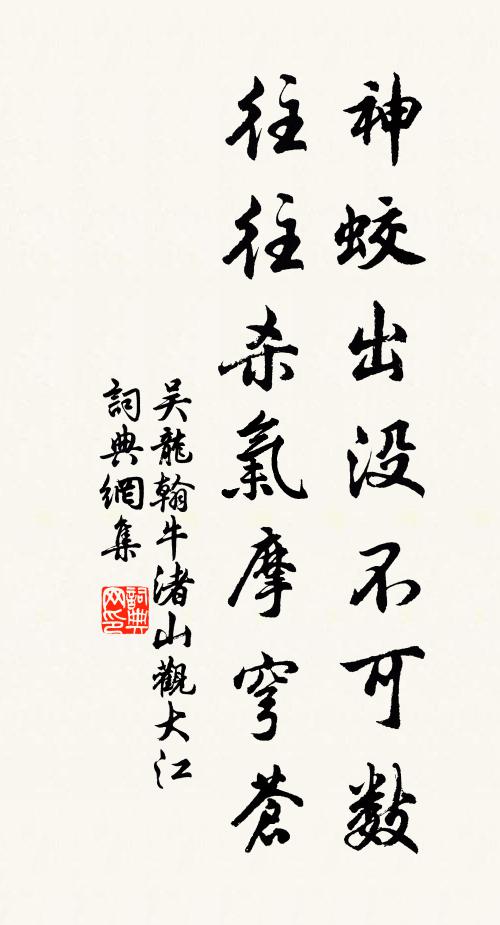 神蛟出没不可數
往往杀氣摩穹蒼
吴龍翰牛渚山觀大江
詞典網集
詞典
网印